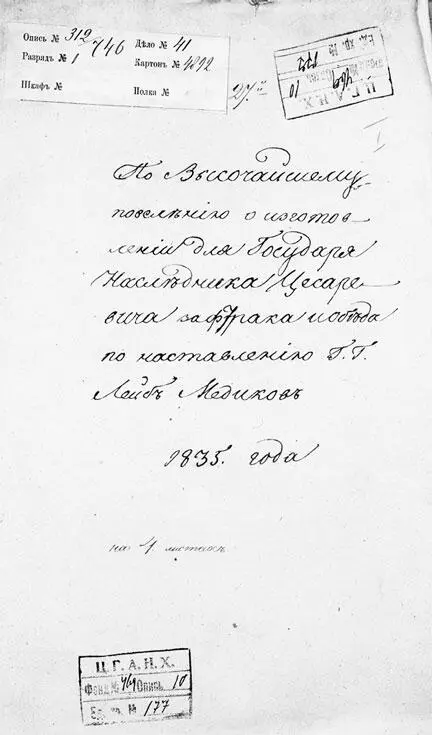 Опись № 312
Разрядъ № 1
746
Дѣло № 41
Картонъ № 4892
Шкафъ №
Полка №
Ц. Г. А. Н. Х.
469
10
177
По Высочайшему
повелѣнію о изготов-
леніи для Государя
Наслѣдника Цесаре-
вича зафтрака и обѣда
по наставленію Г. Г.
Лейбъ Медиковъ
1835. года
на 4 листахъ
Ц. Г. А. Н. Х.
Фонд № 469 Опись 10
Ед. хр. № 177